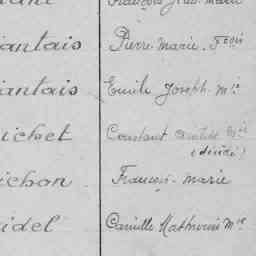 François Jean Marie
antais Pierre-Marie-Fçois
antais Emile Joseph-Mie
ichet Constant Mie
(décédé)
ichon François-marie
idel Camille Mathurin Mie